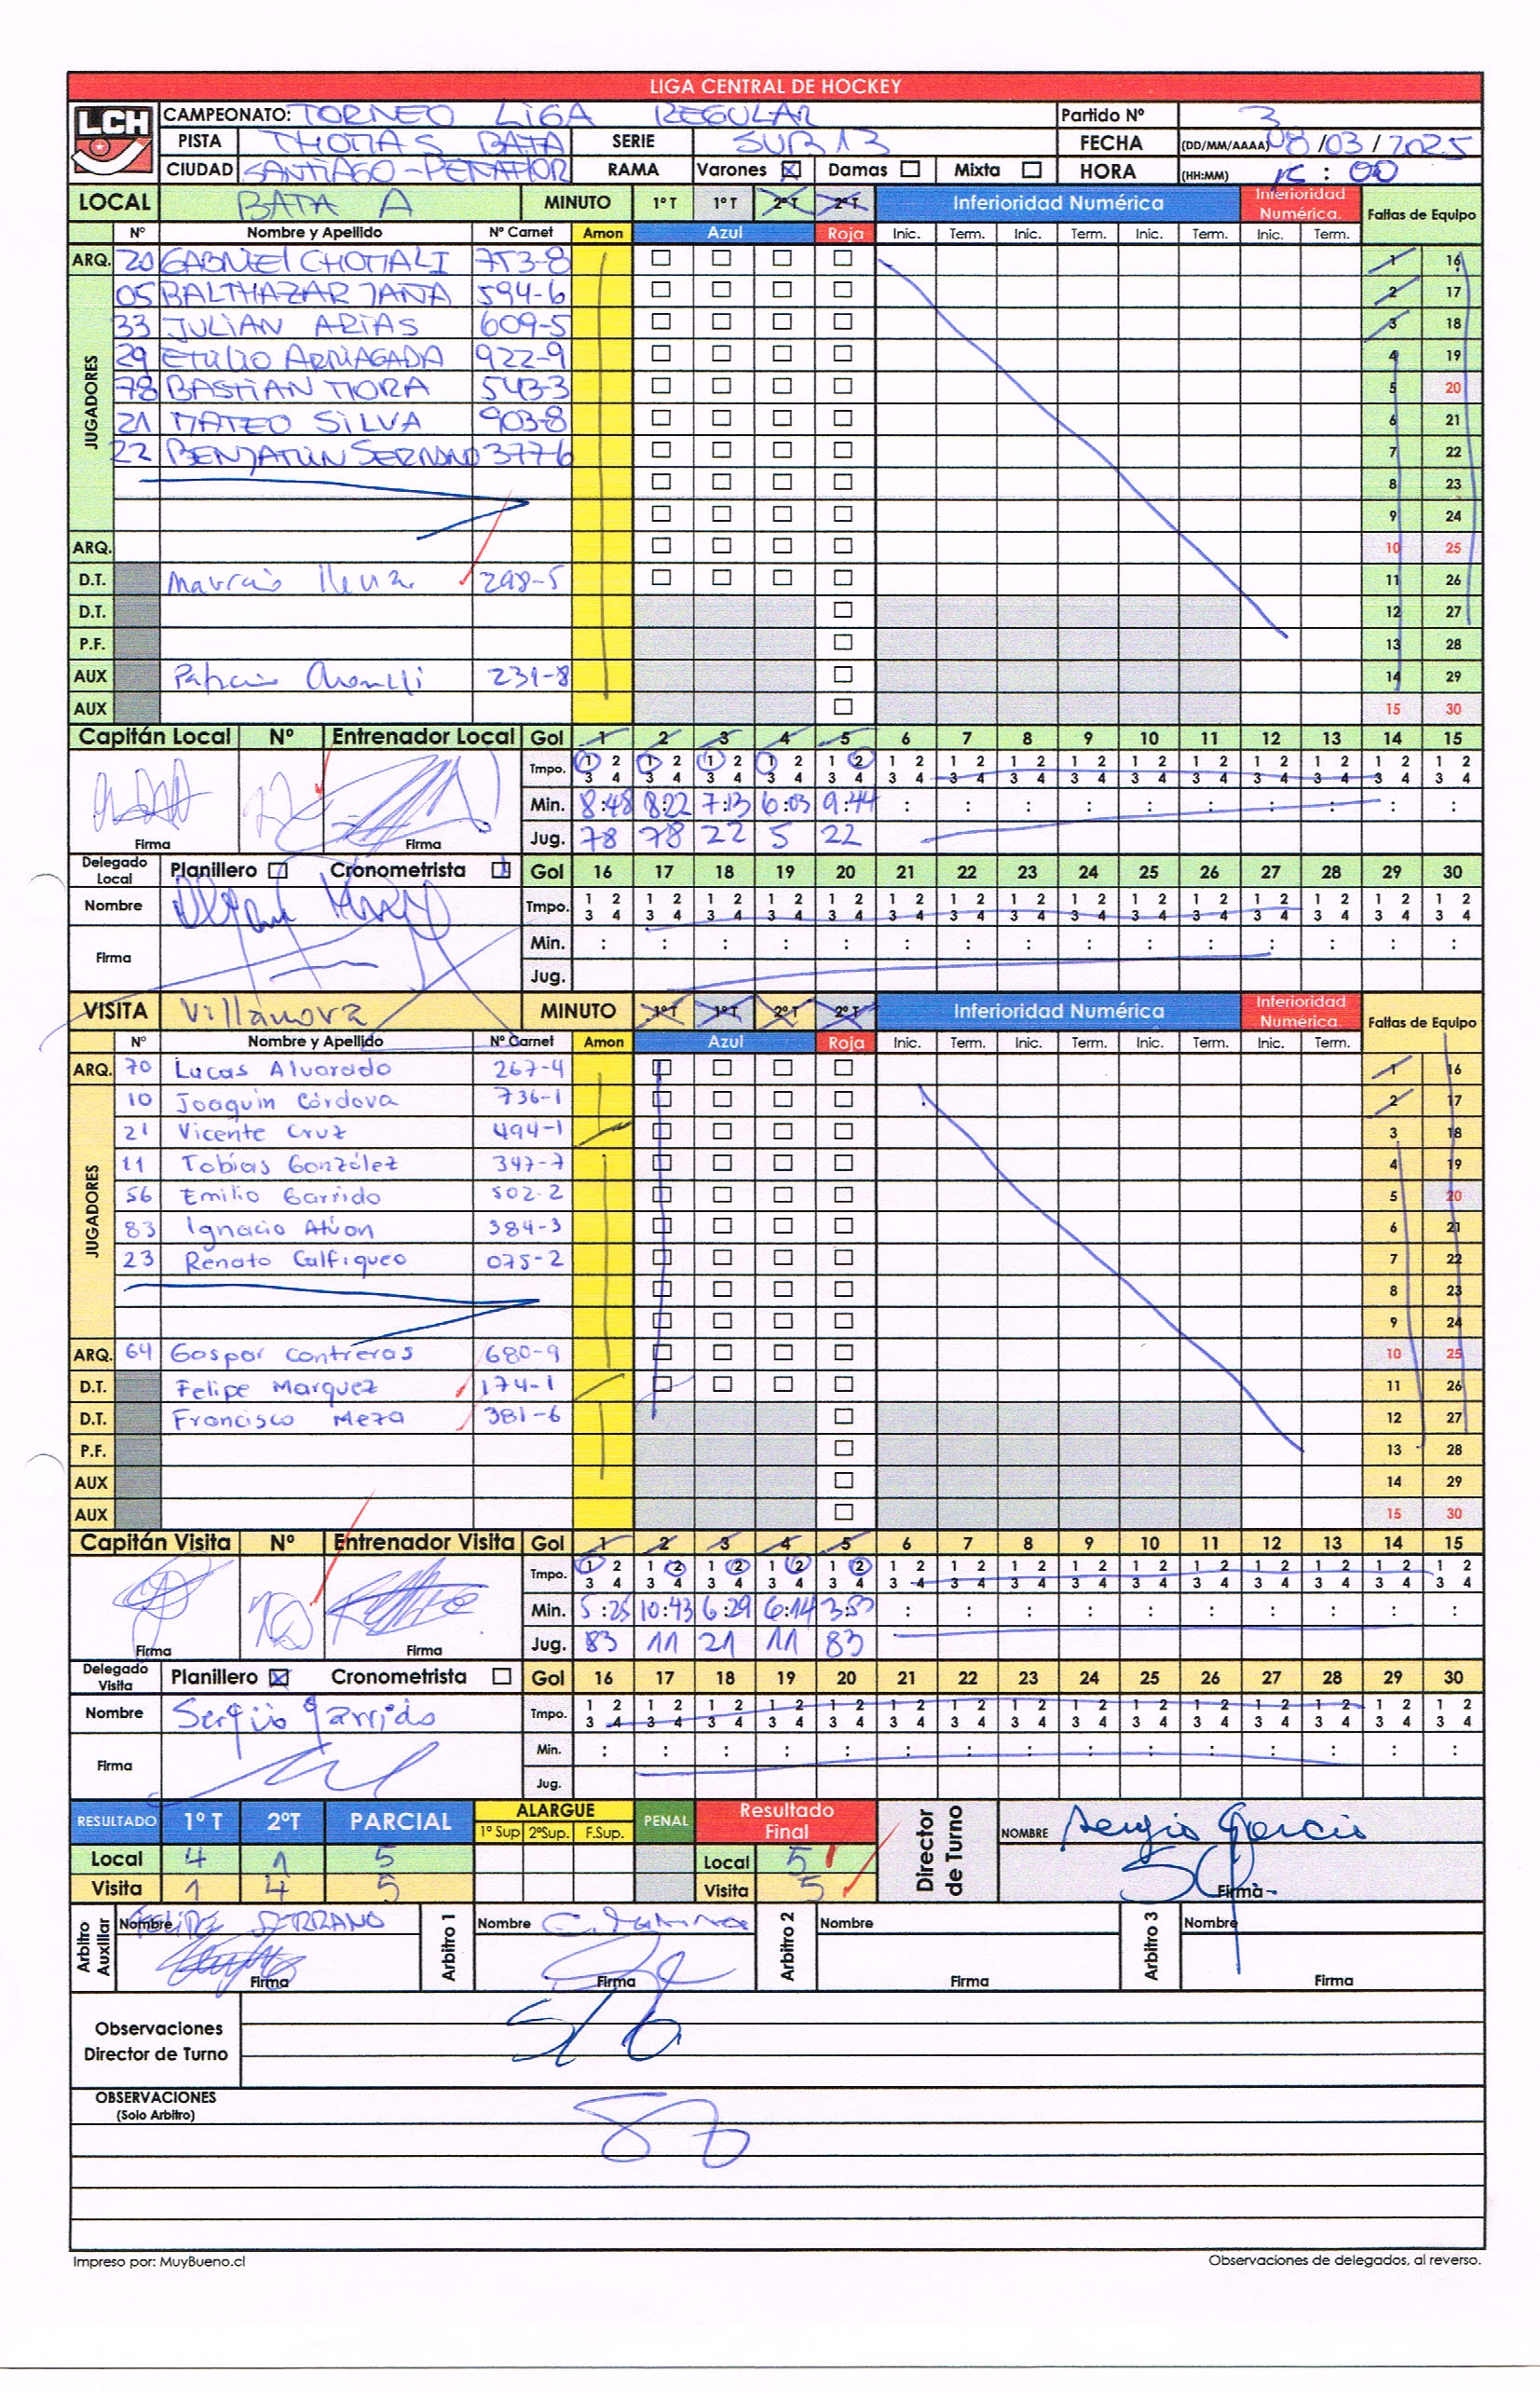 LIGA CENTRAL DE HOCKEY
LCH
CAMPEONATO: TORNEO LIGA REGULAR Partido Nº 3
PISTA THOMAS BATA SERIE SUB 13 FECHA (DD/MM/AAAA) 08/03/2025
CIUDAD SANTIAGO-PEÑAFLOR RAMA Varones Damas Mixta HORA (HH:MM) : 00
LOCAL BATA A MINUTO 1º T 1º T 2º T 2º T Inferioridad Numérica Inferioridad Numérica. Faltas de Equipo
Nº Nombre y Apellido Nº Carnet Amon Azul Roja Inic. Term. Inic. Term. Inic. Term. Inic. Term.
ARQ. 20 GABRIEL CHOMALI 753-8 1 16
JUGADORES
05 BALTHAZAR JAÑA 594-6 2 17
33 JULIAN ARIAS 609-5 3 18
29 EMILIO ARRIAGADA 922-9 4 19
78 BASTIAN MORA 543-3 5 20
21 MATEO SILVA 903-8 6 21
22 BENJAMIN SERRANO 377-6 7 22
8 23
9 24
ARQ. 10 25
D.T. 298-5 11 26
D.T. 12 27
P.F. 13 28
AUX 231-8 14 29
AUX 15 30
Capitán Local Nº Entrenador Local Gol 1 2 3 4 5 6 7 8 9 10 11 12 13 14 15
Tmpo. 1 2 1 2 1 2 1 2 1 2 1 2 1 2 1 2 1 2 1 2 1 2 1 2 1 2 1 2 1 2
3 4 3 4 3 4 3 4 3 4 3 4 3 4 3 4 3 4 3 4 3 4 3 4 3 4 3 4 3 4
22 Min. 8:48 8:22 7:13 6:03 9:44 : : : : : : : : : :
Firma Firma Jug. 78 78 22 5 22
Delegado Local Planillero Cronometrista Gol 16 17 18 19 20 21 22 23 24 25 26 27 28 29 30
Nombre Tmpo. 1 2 1 2 1 2 1 2 1 2 1 2 1 2 1 2 1 2 1 2 1 2 1 2 1 2 1 2 1 2
3 4 3 4 3 4 3 4 3 4 3 4 3 4 3 4 3 4 3 4 3 4 3 4 3 4 3 4 3 4
Firma Min. : : : : : : : : : : : : : : :
Jug.
VISITA Villanova MINUTO 1º T 1º T 2º T 2º T Inferioridad Numérica Inferioridad Numérica. Faltas de Equipo
Nº Nombre y Apellido Nº Carnet Amon Azul Roja Inic. Term. Inic. Term. Inic. Term. Inic. Term.
ARQ. 70 Lucas Alvarado 267-4 1 16
JUGADORES
10 Joaquín Córdova 736-1 2 17
21 Vicente Cruz 494-1 3 18
11 Tobías González 347-7 4 19
56 Emilio Garrido 502-2 5 20
83 Ignacio 384-3 6 21
23 Renato Calfiqueo 075-2 7 22
8 23
9 24
ARQ. 64 Gaspar Contreras 680-9 10 25
D.T. Felipe Marquez 174-1 11 26
D.T. Francisco Meza 381-6 12 27
P.F. 13 28
AUX 14 29
AUX 15 30
Capitán Visita Nº Entrenador Visita Gol 1 2 3 4 5 6 7 8 9 10 11 12 13 14 15
Tmpo. 1 2 1 2 1 2 1 2 1 2 1 2 1 2 1 2 1 2 1 2 1 2 1 2 1 2 1 2 1 2
3 4 3 4 3 4 3 4 3 4 3 4 3 4 3 4 3 4 3 4 3 4 3 4 3 4 3 4 3 4
10 Min. 5:25 10:43 6:29 6:14 3:53 : : : : : : : : : :
Firma Firma Jug. 83 11 21 11 83
Delegado Visita Planillero Cronometrista Gol 16 17 18 19 20 21 22 23 24 25 26 27 28 29 30
Nombre Sergio Garrido Tmpo. 1 2 1 2 1 2 1 2 1 2 1 2 1 2 1 2 1 2 1 2 1 2 1 2 1 2 1 2 1 2
3 4 3 4 3 4 3 4 3 4 3 4 3 4 3 4 3 4 3 4 3 4 3 4 3 4 3 4 3 4
Firma Min. : : : : : : : : : : : : : : :
Jug.
RESULTADO 1º T 2ºT PARCIAL ALARGUE 1º Sup 2ºSup. F.Sup. PENAL Resultado Final Director de Turno NOMBRE Sergio García
Local 4 1 5 Local 5
Visita 1 4 5 Visita 5 Firma
Arbitro Auxiliar Nombre FELIPE SERRANO Arbitro 1 Nombre Arbitro 2 Nombre Arbitro 3 Nombre
Firma Firma Firma Firma
Observaciones Director de Turno S/O
OBSERVACIONES
(Solo Arbitro)
Impreso por: MuyBueno.cl Observaciones de delegados, al reverso.